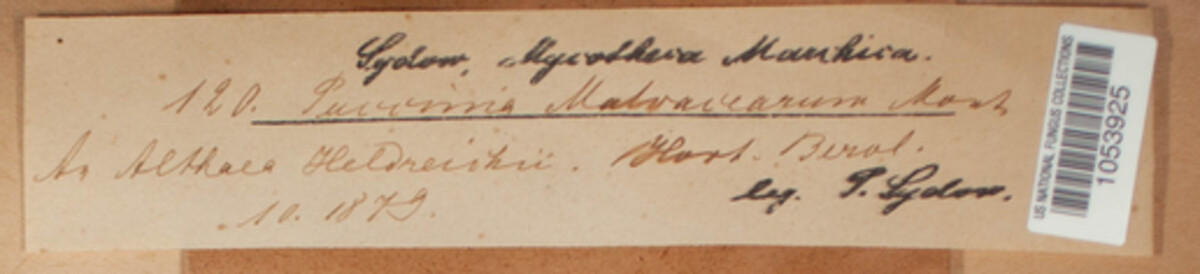 Sydow, Mycotheca Marchica.
120. Puccinia Malvacearum Mont
An Althaea Heldreichii. Hort. Berol.
leg. P. Sydow.
10. 1879.
US NATIONAL FUNGUS COLLECTIONS
1053925